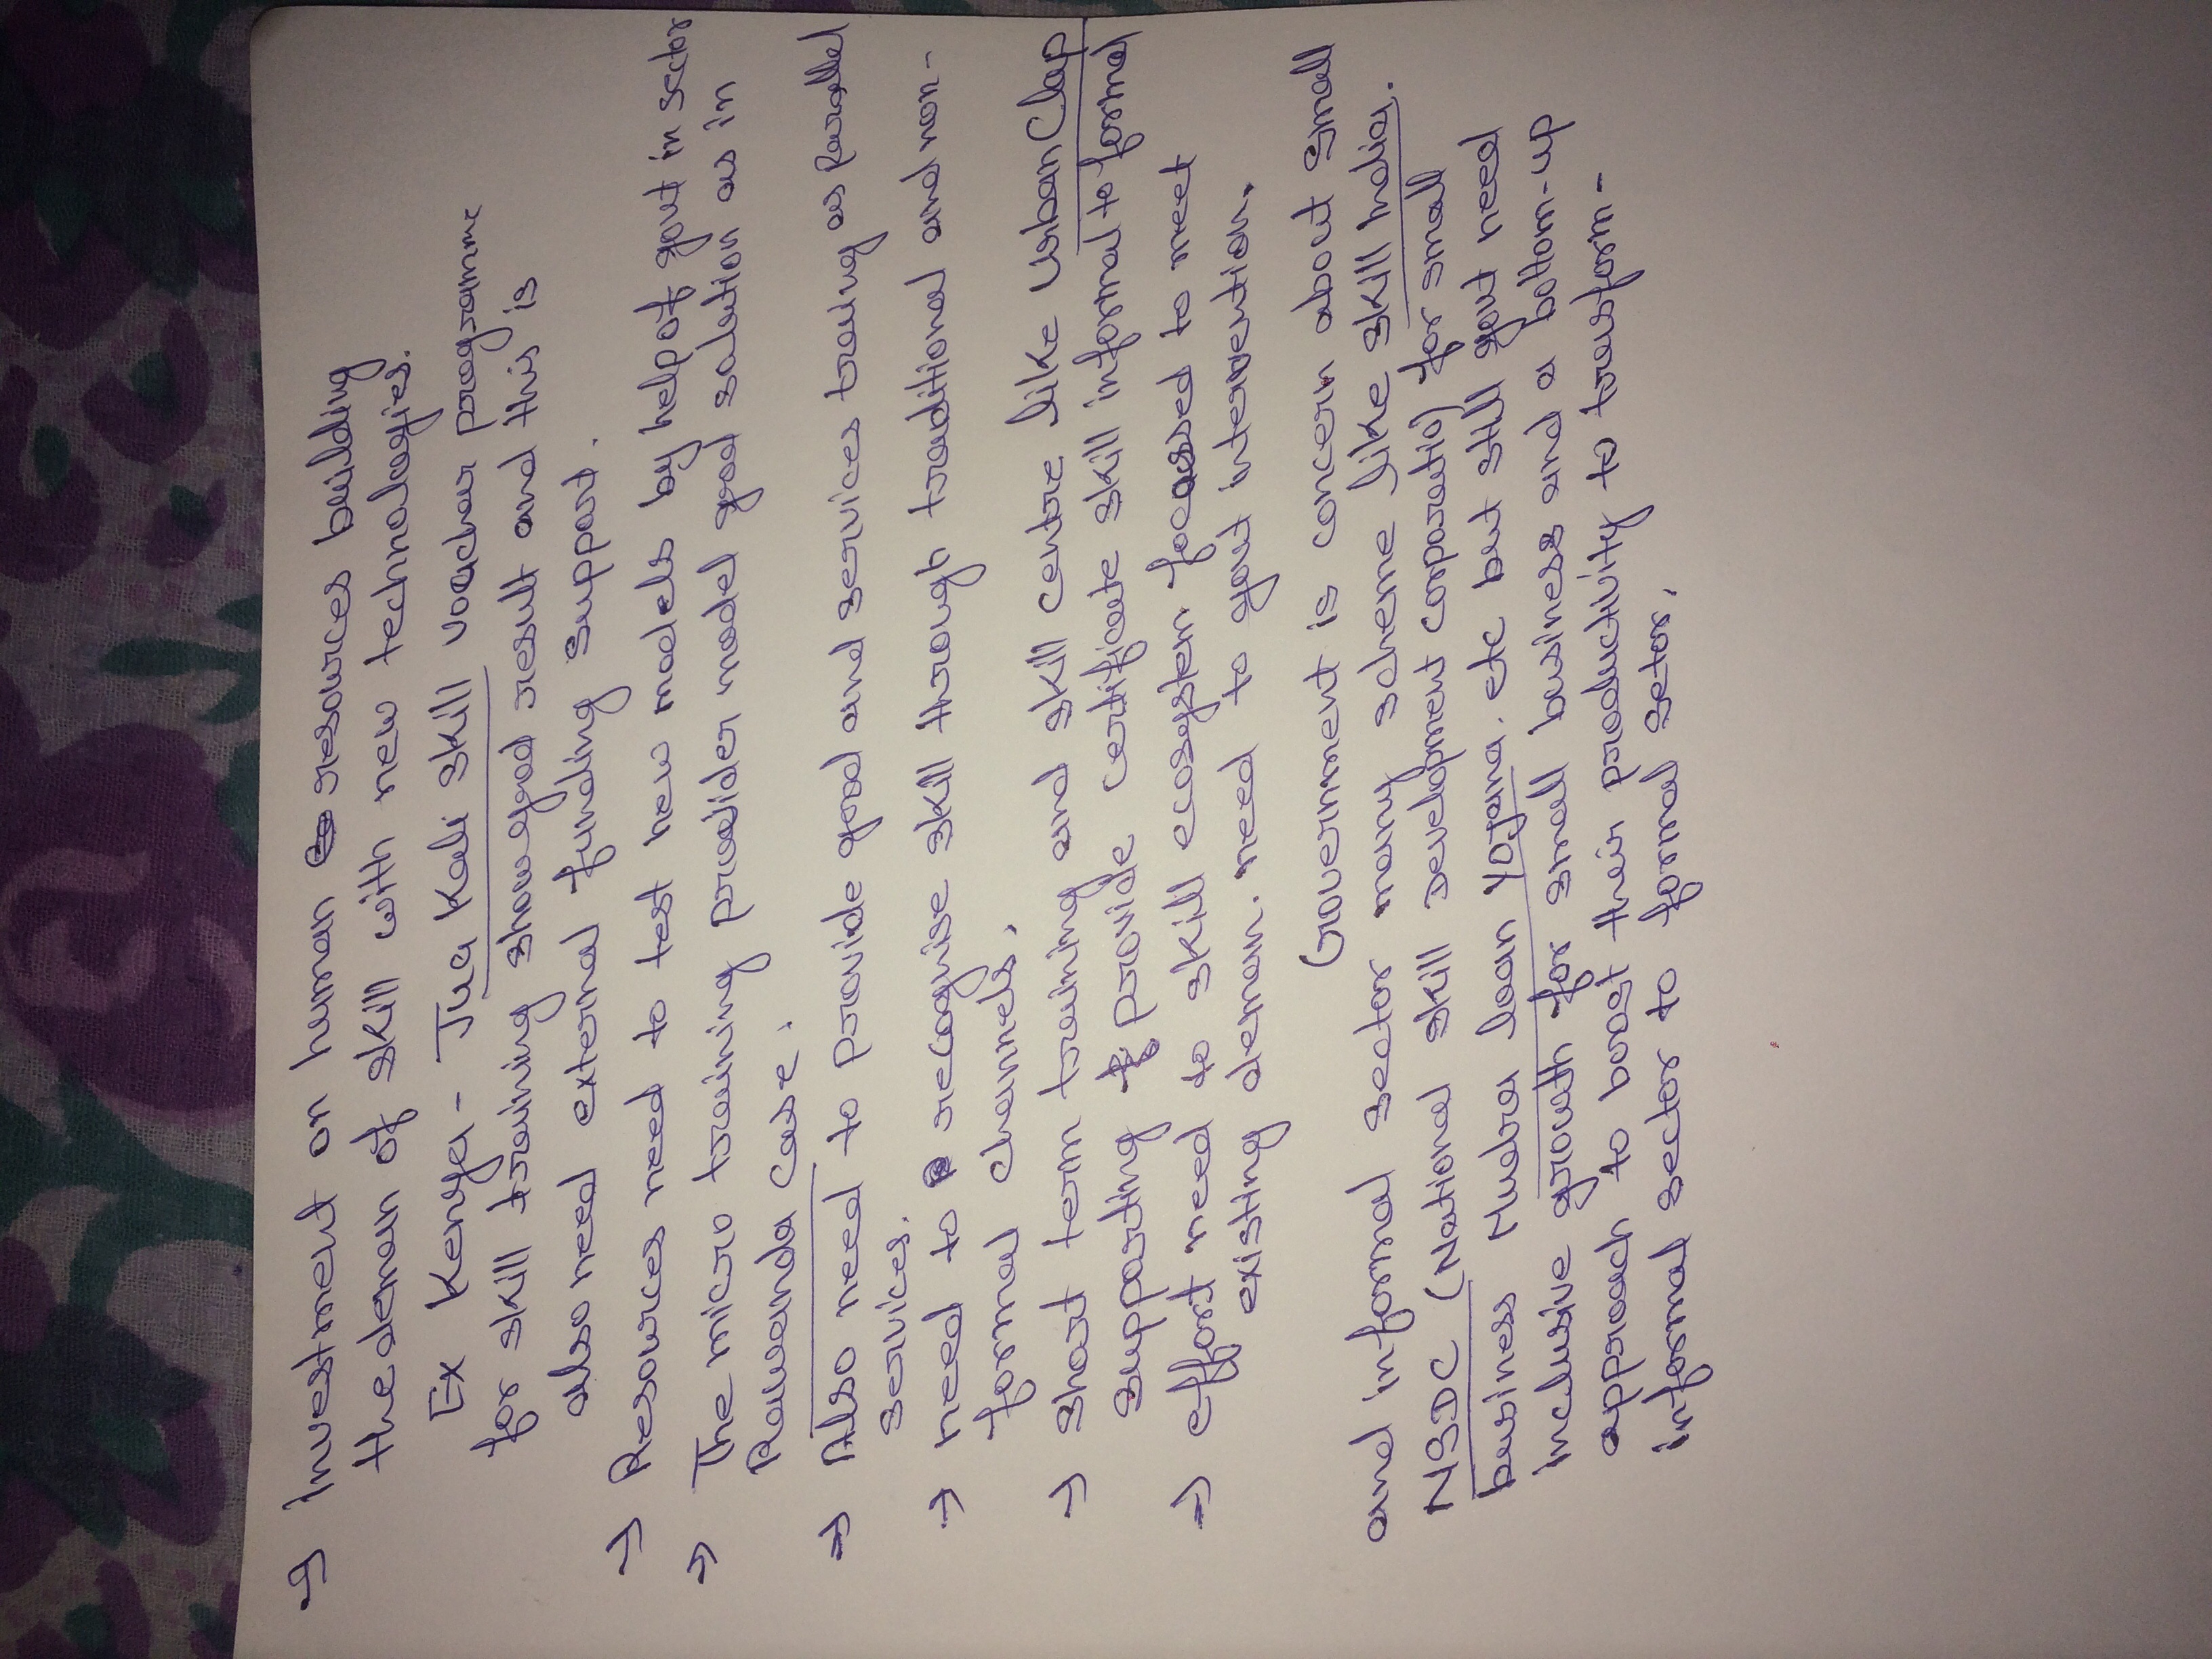 → Investment on human resources building
the deman of skill with new technologies.
Ex Kenya - Jua Kali skill voucher programme
for skill training show good result and this is
also need external funding support.
→ Resources need to test new models by help of govt in sector
→ The micro training provider model good solution as in
Rawanda case.
→ Also need to provide good and services traing as parallel
services.
→ need to recognise skill through traditional and non-
formal channels.
→ Short term training and skill centre like UrbanClap
supporting & provide certificate skill informal to formal
→ effort need to skill ecosystem focussed to meet
existing deman. need to govt intervention.
Government is concern about small
and informal sector many scheme like skill India.
NSDC (National skill development corporatio) for small
business Mudra loan Yojana. etc but still govt need
inclusive growth for small business and a bottom-up
approach to bost their productivity to trasform-
informal sector to formal setor.